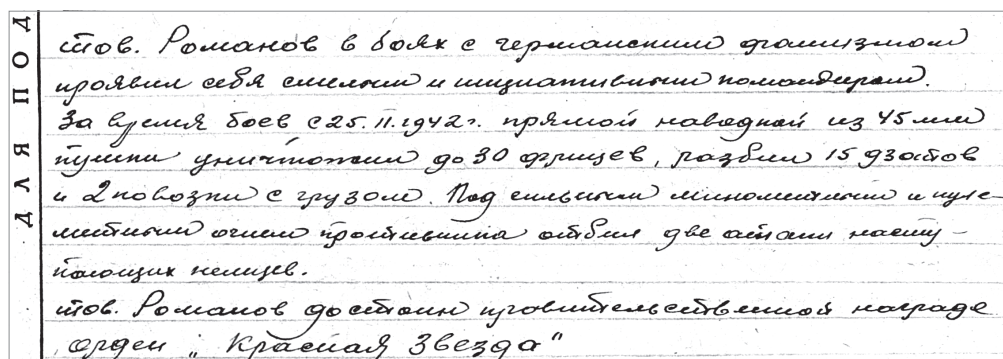 ДЛЯ ПОД
тов. Романов в боях с германским фашизмом
проявил себя смелым и инициативным командиром.
За время боев с 25.11.1942г. прямой наводкой из 45 мм
пушки уничтожил до 30 фрицев, разбил 15 дзотов
и 2 повозки с грузом. Под сильным минометным и пуле-
метным огнем противника отбил две атаки насту-
пающих немцев.
тов. Романов достоин правительственной награде
орден "Красная Звезда"